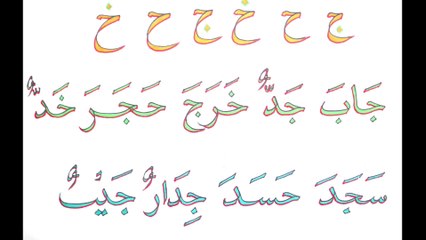 ج ح خ ج ح خ
جَابَ جَدٌّ خَرَجَ حَجَرَ خَدٌّ
سَجَدَ حَسَدَ جِدَارٌ جَيْبٌ